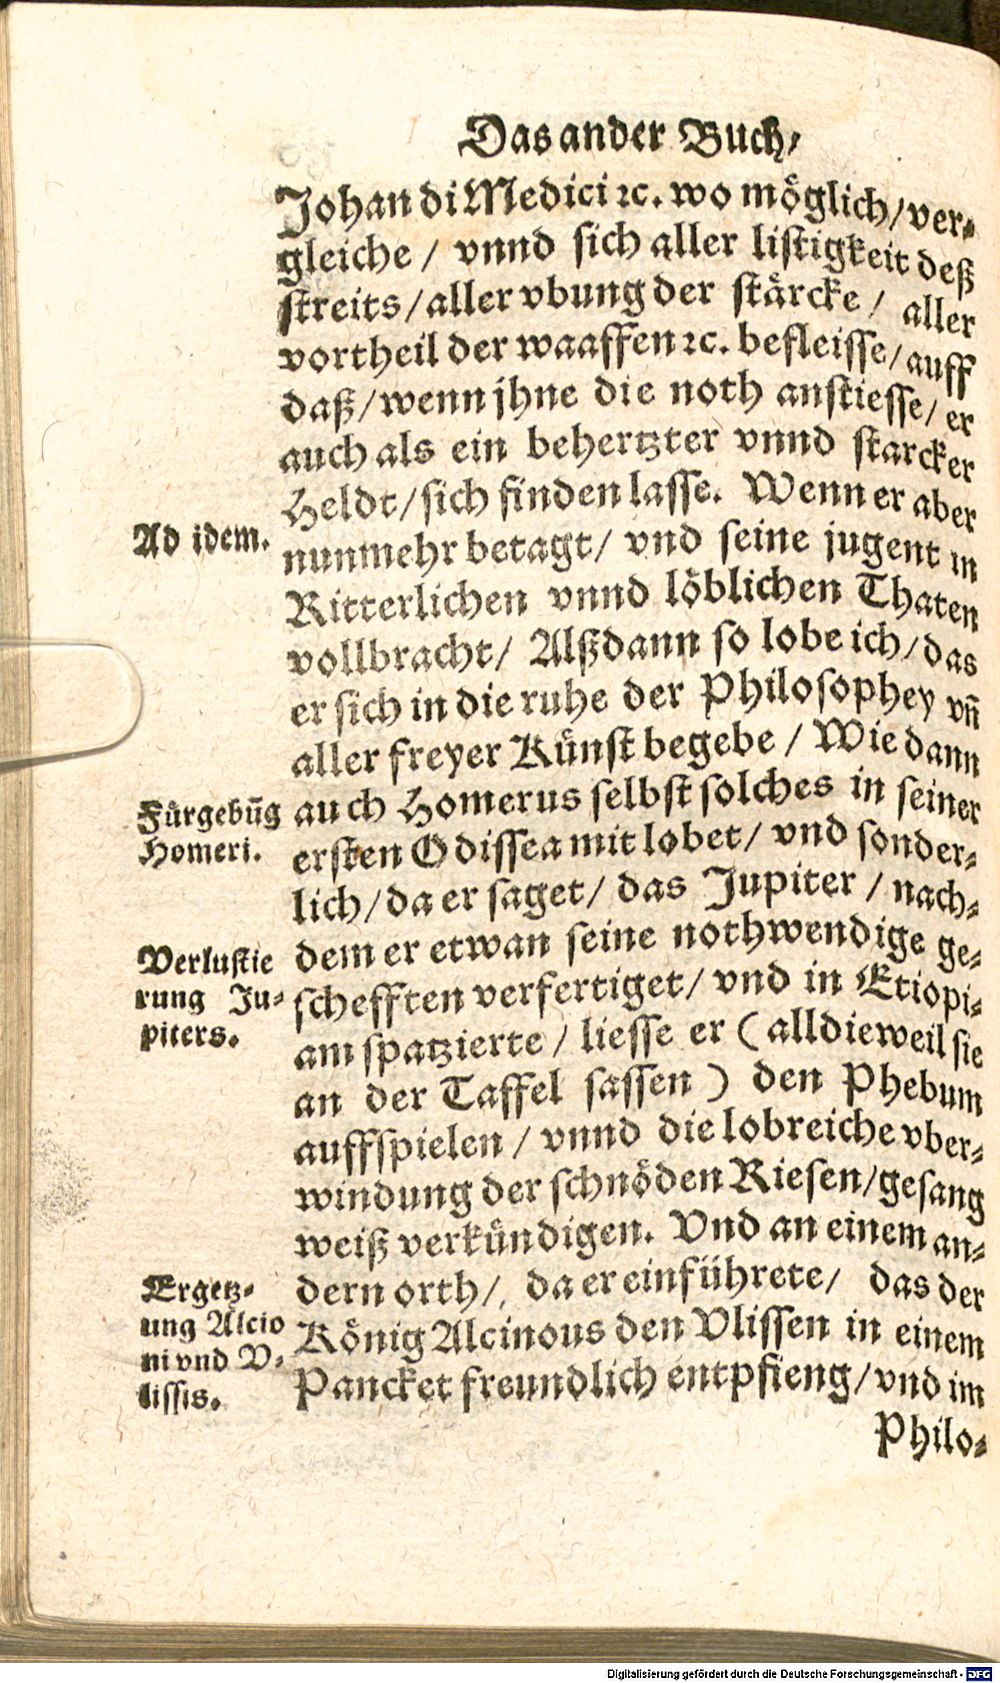 Das ander Buch/
Johan di Medici ꝛc. wo möglich/ ver⸗
gleiche / vnnd sich aller listigkeit deß
streits/ aller vbung der stärcke / aller
vortheil der waaffen ꝛc. befleisse/ auff
daß/ wenn jhne die noth anstiesse/ er
auch als ein behertzter vnnd starcker
Heldt/ sich finden lasse. Wenn er aber
Ad idem.
nunmehr betagt/ vnd seine jugent in
Ritterlichen vnnd löblichen Thaten
vollbracht/ Alßdann so lobe ich/ das
er sich in die ruhe der Philosophey vn̄
aller freyer Künst begebe / Wie dann
Fürgebūg
Homeri.
auch Homerus selbst solches in seiner
ersten Odissea mit lobet/ vnd sonder⸗
lich/ da er saget/ das Jupiter / nach⸗
Verlustie
rung Ju⸗
piters.
dem er etwan seine nothwendige ge⸗
schefften verfertiget/ vnd in Etiopi⸗
am spatzierte / liesse er ( alldieweil sie
an der Taffel sassen ) den Phebum
auffspielen / vnnd die lobreiche vber⸗
windung der schnöden Riesen/ gesang
weiß verkündigen. Vnd an einem an⸗
Ergetz⸗
ung Alcio
ni vnd V⸗
lissis.
dern orth/, da er einführete/ das der
König Alcinous den Vlissen in einem
Pancket freundlich entpfieng/ vnd im
Philo⸗
Digitalisierung gefördert durch die Deutsche Forschungsgemeinschaft - DFG